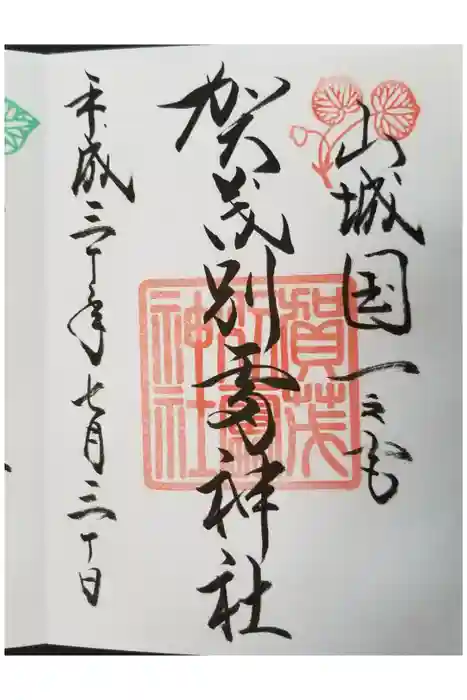 山城国一之宮
賀茂別雷神社
平成三十年七月三十日
賀茂
別雷
神社